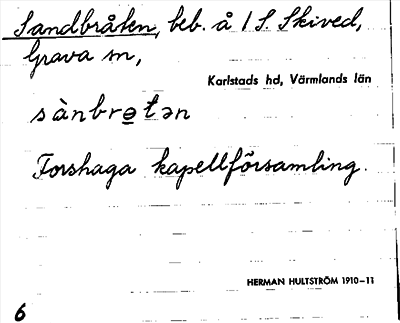 Sandbråten, beb. å 1 S. Skived,
Grava sn,
Karlstads hd, Värmlands län
sànbro̲tən
Forshaga kapellförsamling.
HERMAN HULTSTRÖM 1910–11
6